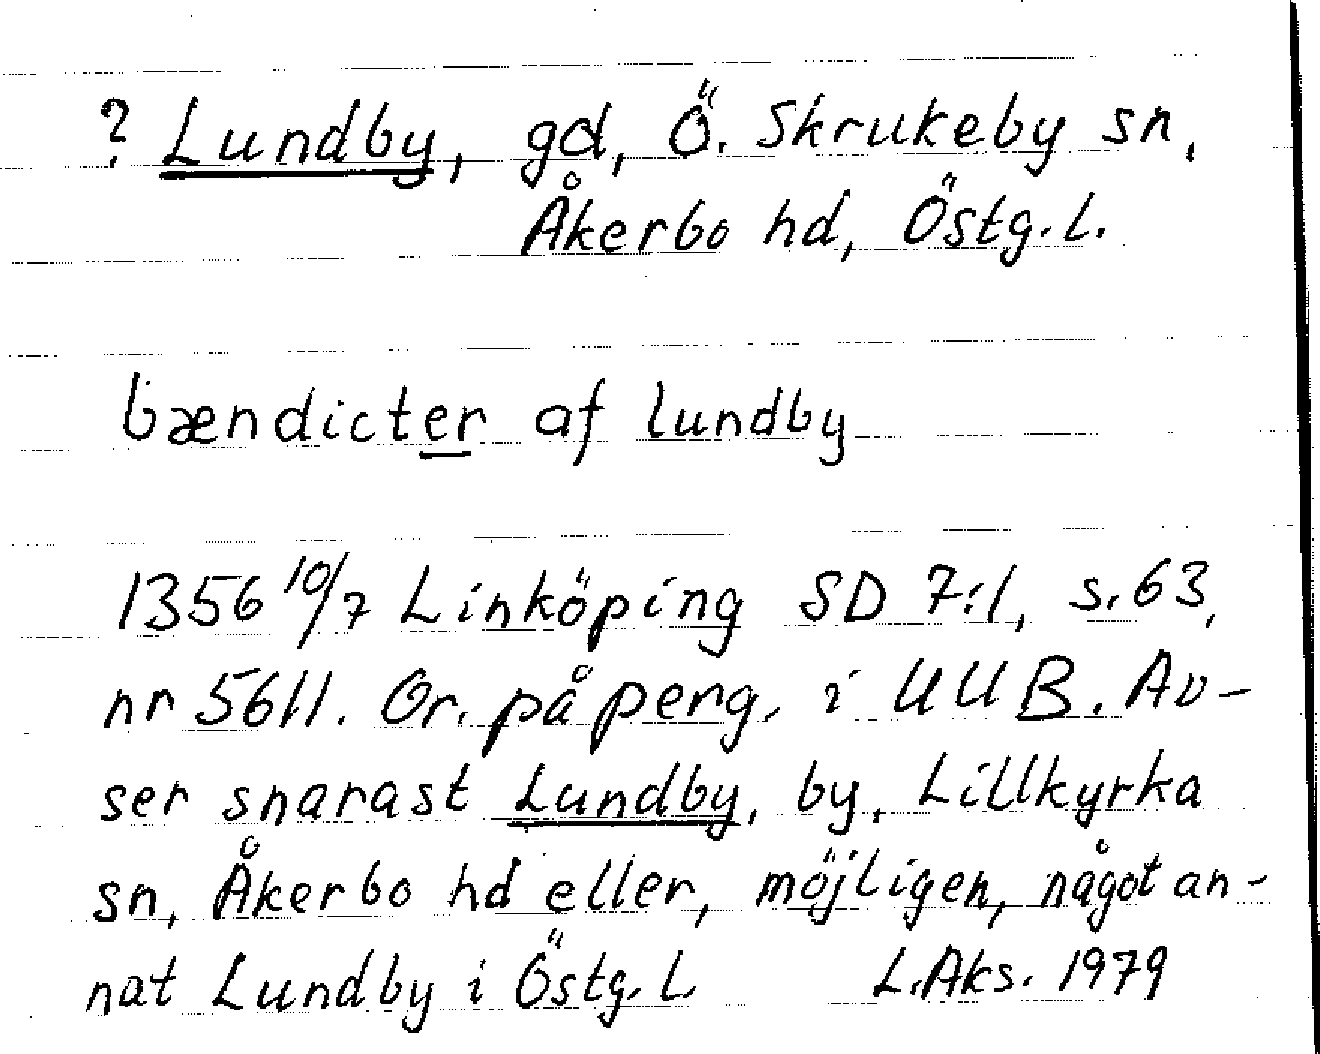 ? Lundby, gd, Ö. Skrukeby sn,
Åkerbo hd, Östg.l.
bændicter af lundby
1356 10/7 Linköping SD 7:1, s. 63,
nr 5611. Or. på perg. i UUB. Av-
ser snarast Lundby, by, Lillkyrka
sn, Åkerbo hd eller, möjligen, något an-
nat Lundby i Östg.l. L.Aks. 1979